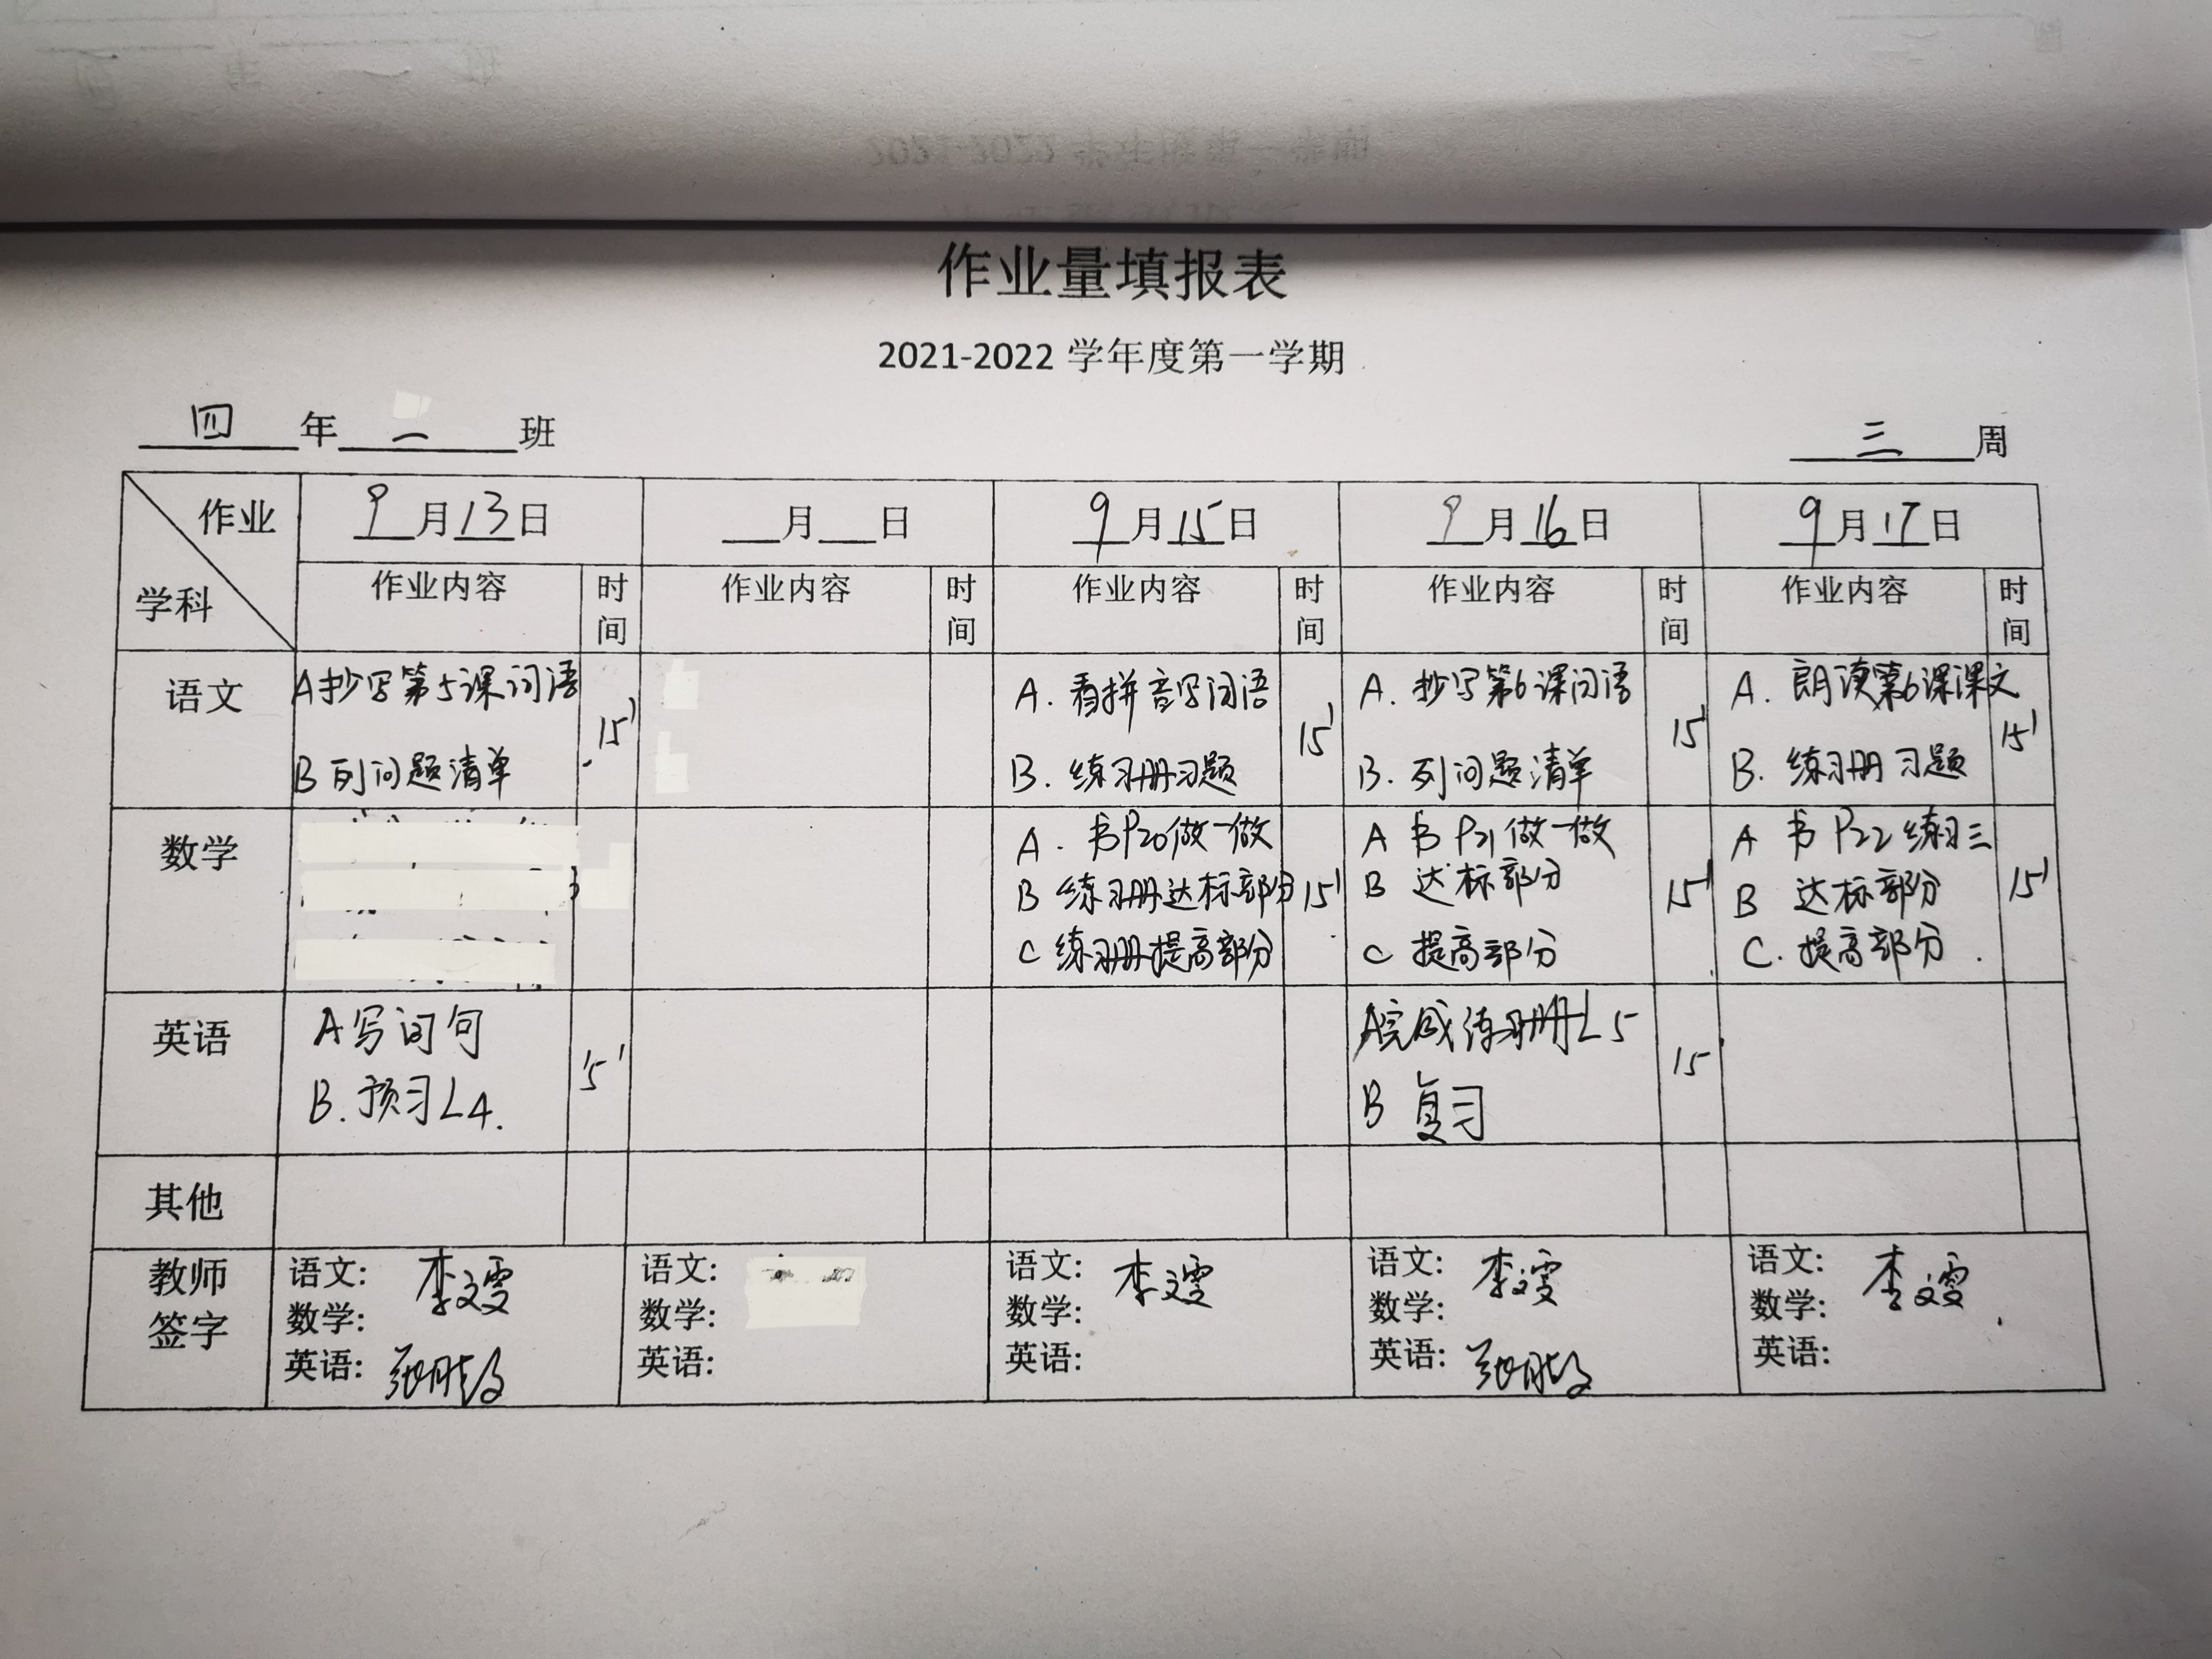 作业量填报表
2021-2022 学年度第一学期
四 年 二 班
三 周
作业
学科
9 月 13 日
月 日
9 月 15 日
9 月 16 日
9 月 17 日
作业内容 时间
作业内容 时间
作业内容 时间
作业内容 时间
作业内容 时间
语文
A抄写第5课词语
B 列问题清单
15'
A. 看拼音写词语
B. 练习册习题
15'
A. 抄写第6课词语
B. 列问题清单
15'
A. 朗读第6课课文
B. 练习册习题
15'
数学
A. 书P20做一做
B 练习册达标部分
C 练习册提高部分
15'
A 书P21做一做
B 达标部分
C 提高部分
15'
A 书P22练习三
B 达标部分
C. 提高部分.
15'
英语
A写词句
B. 预习L4.
15'
A完成练习册L5
B 复习
15
其他
教师
签字
语文: 李雯
数学:
英语:
语文:
数学:
英语:
语文: 李雯
数学:
英语:
语文: 李雯
数学:
英语:
语文: 李雯
数学:
英语: